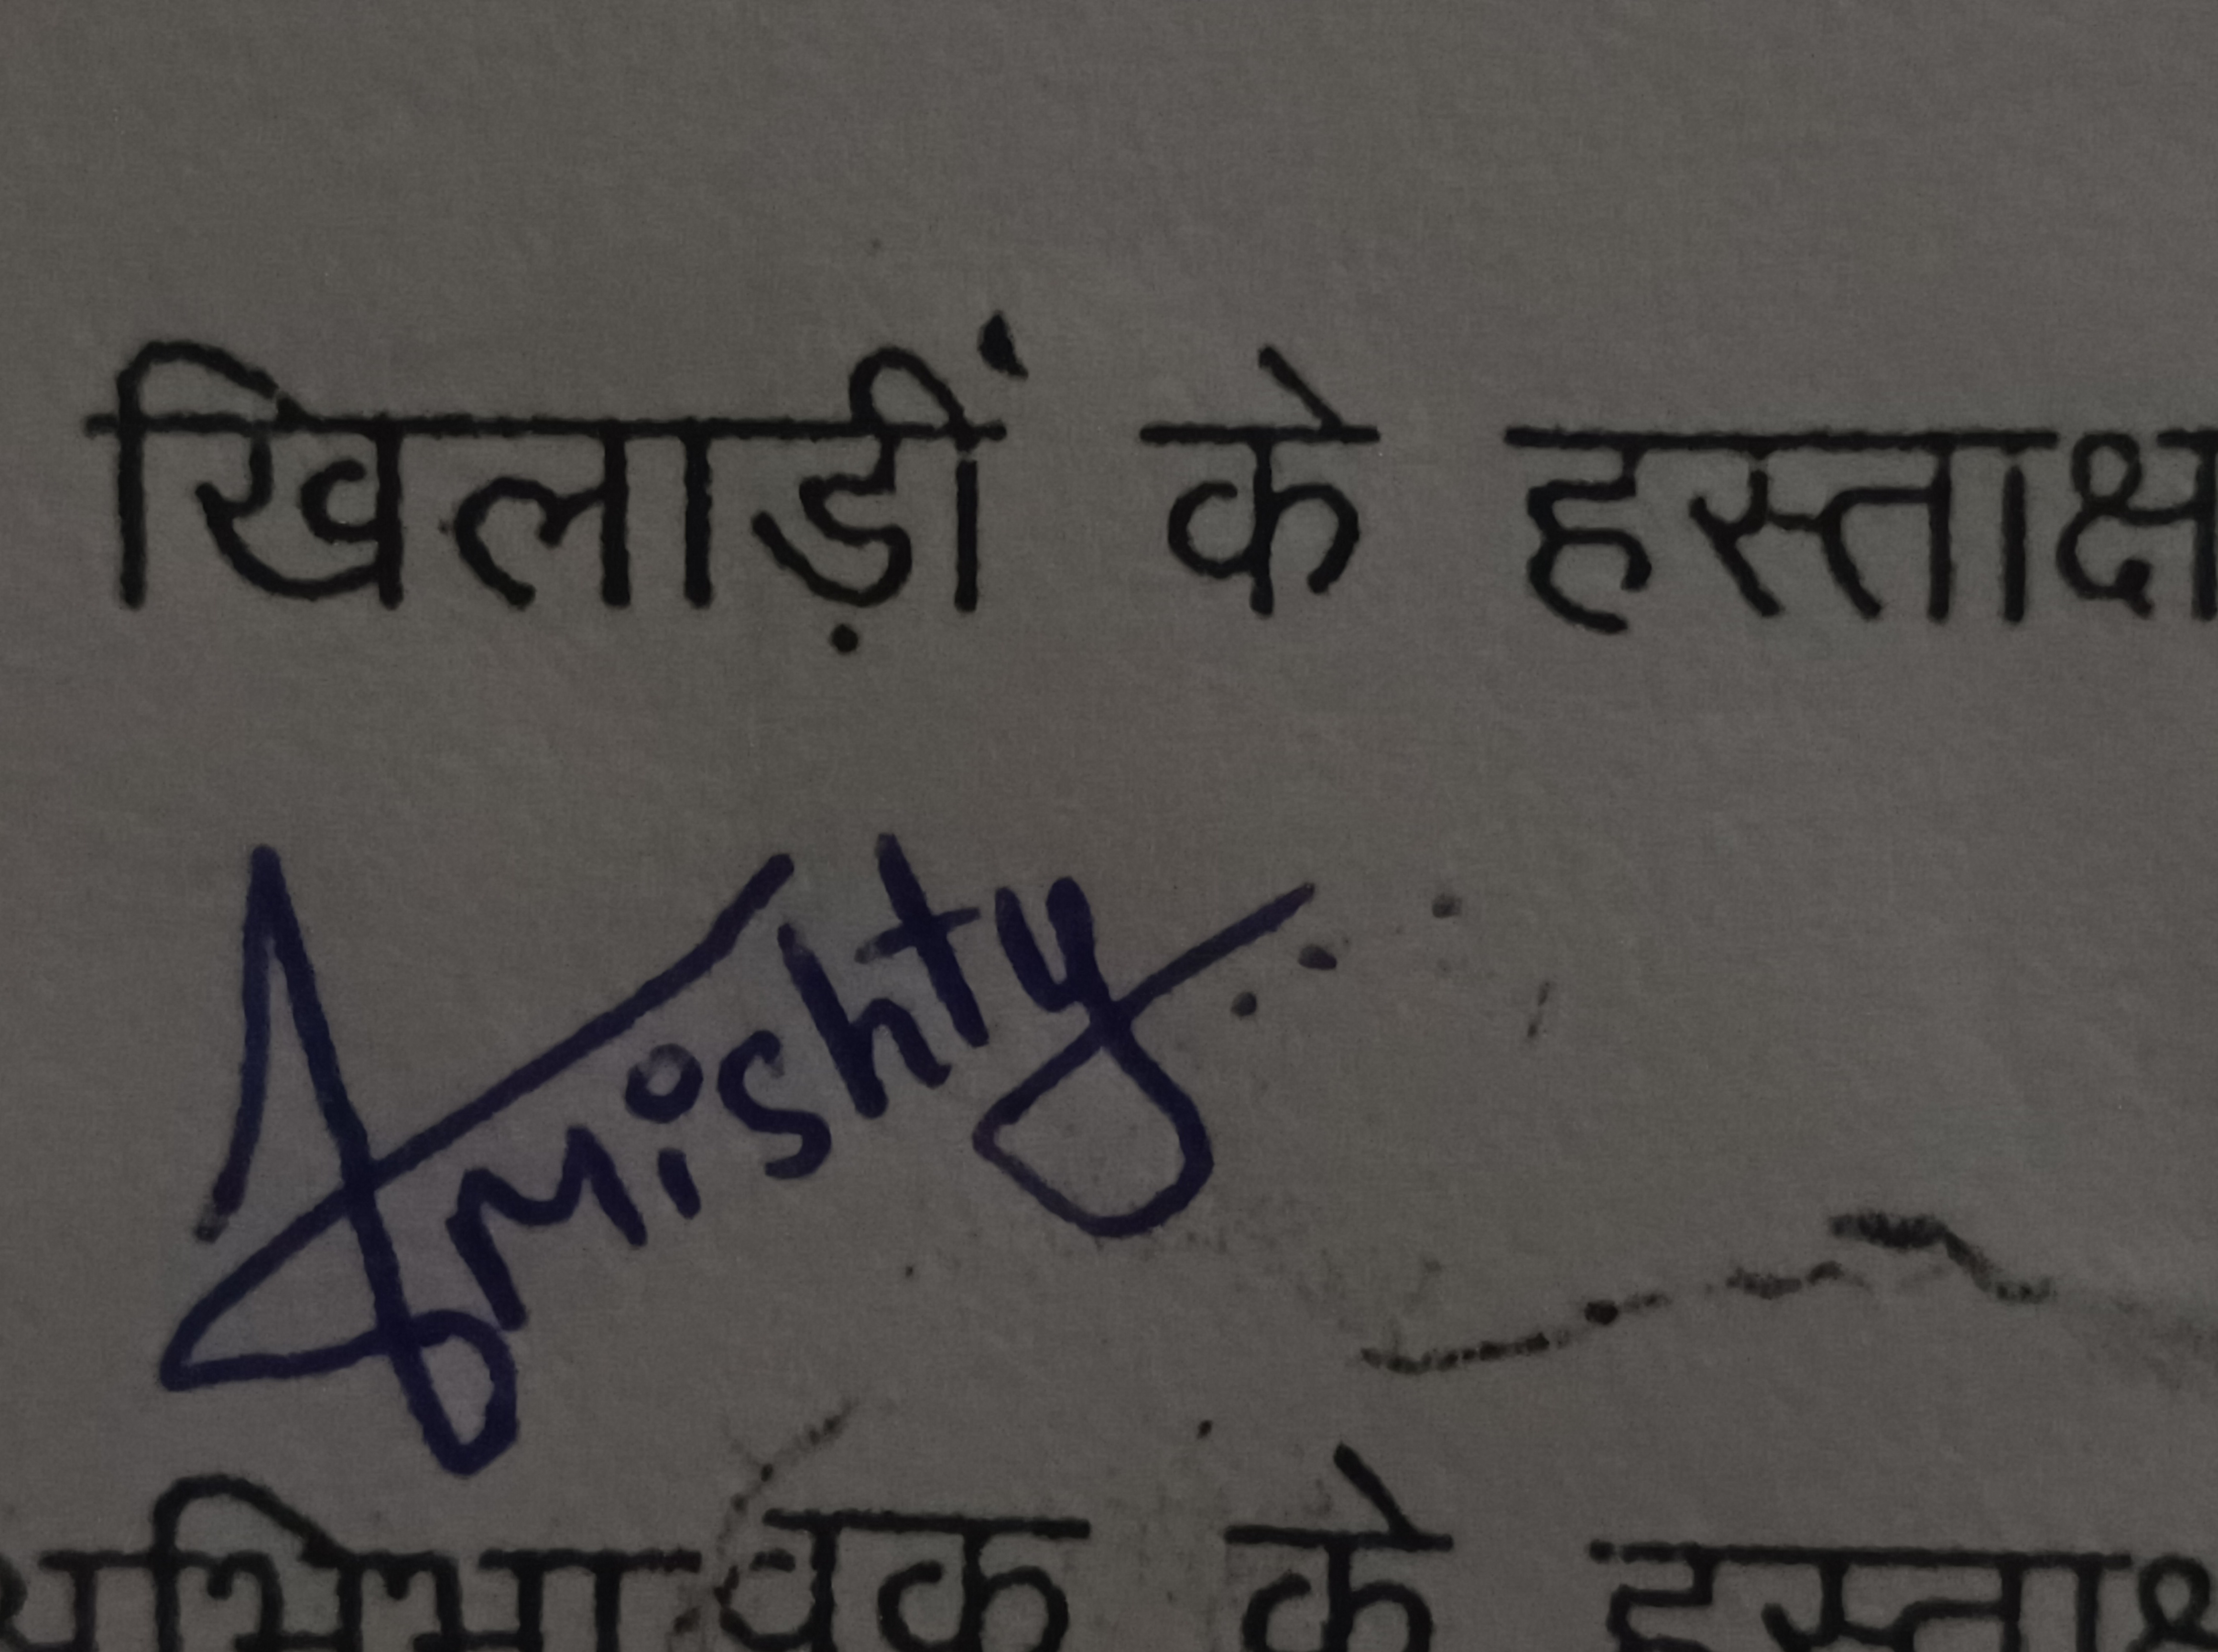 खिलाड़ीं के हस्ताक्ष
Amishty
अभिभावक के हस्ताक्ष